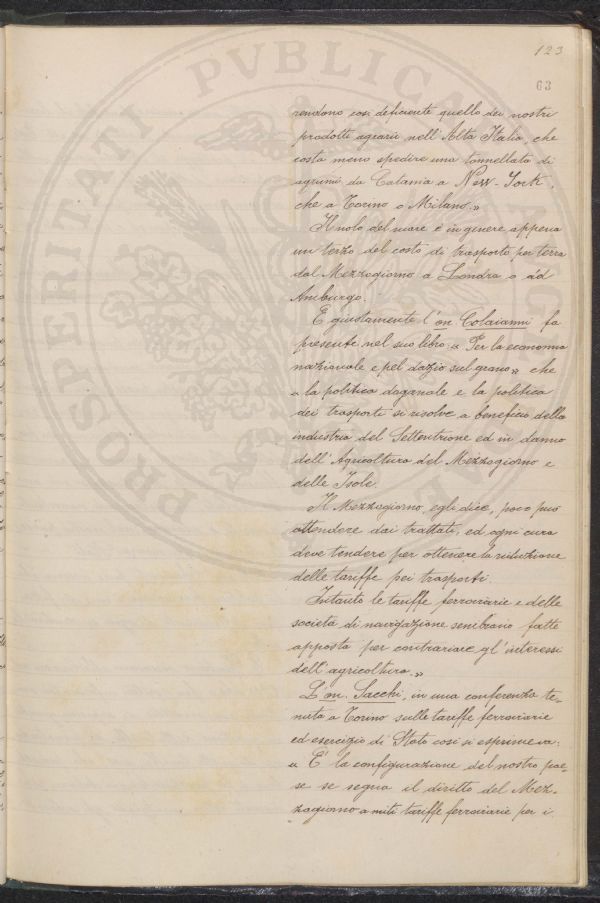 123
63
rendono così deficiente quello dei nostri
prodotti agrari nell'Alta Italia, che
costa meno spedire una tonnellata di
agrumi da Catania a New-York,
che a Torino o Milano.»
Il nolo del mare è in genere appena
un terzo del costo di trasporto per terra
dal Mezzogiorno a Londra o ad
Amburgo.
E giustamente l'on. Colaianni fa
presente nel suo libro: « Per la economia
nazionale e pel dazio sul grano » che
« la politica doganale e la politica
dei trasporti si risolve a beneficio della
industria del Settentrione ed in danno
dell'Agricoltura del Mezzogiorno e
delle Isole.
Il Mezzogiorno, egli dice, poco può
attendere dai trattati, ed ogni cura
deve tendere per ottenere la riduzione
delle tariffe pei trasporti.
Intanto le tariffe ferroviarie e delle
società di navigazione sembrano fatte
apposta per contrariare gl'interessi
dell'agricoltura.»
L'on. Sacchi, in una conferenza te-
nuta a Torino sulle tariffe ferroviarie
ed esercizio di Stato così si esprimeva:
« È la configurazione del nostro pae-
se se segna il diritto del Mez-
zogiorno a miti tariffe ferroviarie per i
PROSPERITATI PVBLICAE